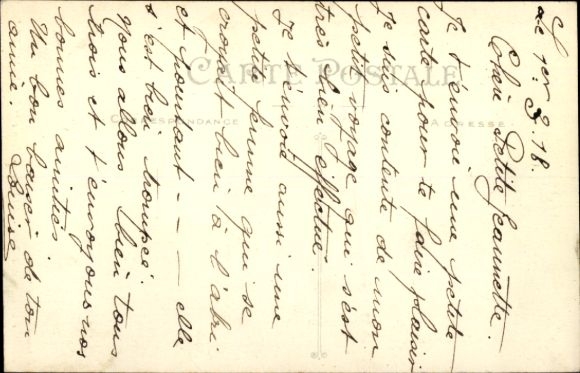 le 1er. 9. 18.
Chère Petite Jeannette.
Je t'envoie une petite
carte pour te faire plaisir
Je suis contente de mon
petit voyage qui s'est
très bien effectué.
Je t'envoie aussi une
petite femme qui se
croyait bien à l'abri
et pourtant - - - elle
s'est bien trompée.
Nous allons bien tous
trois et t'envoyons nos
bonnes amitiés.
Un bon baiser de ton
amie. Louise
CARTE POSTALE
CORRESPONDANCE
ADRESSE